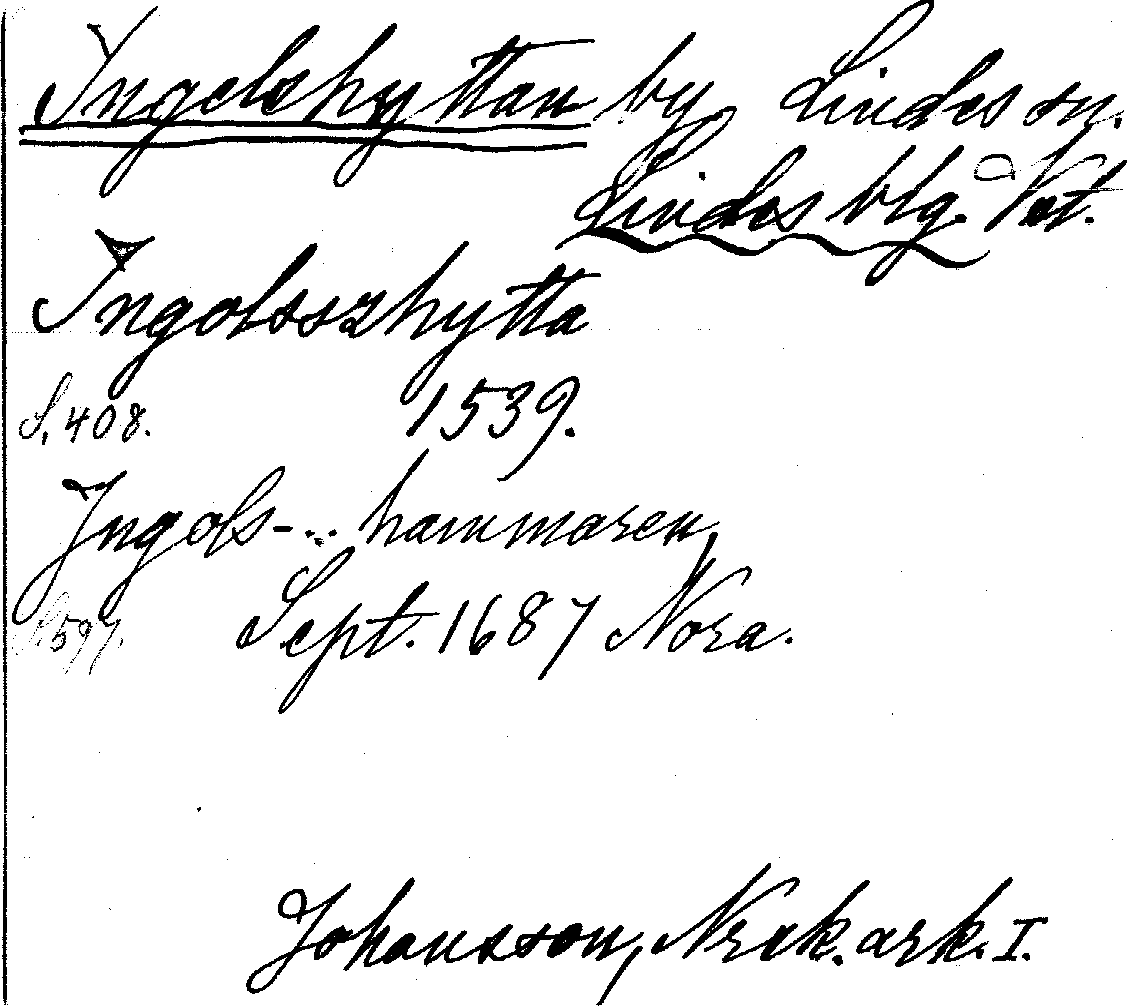 Ingelshyttan by Lindes sn.
Lindes blg. Vst.
Ingolsszhytta
S. 408. 1539.
Ingols-... hammaren,
S. 597. Sept. 1687 Nora.
Johansson, Nrak. ark. I.